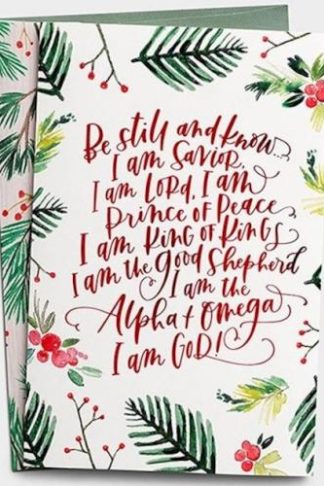 Be still and know...
I am Savior,
I am Lord, I am
Prince of Peace
I am King of Kings
I am the Good Shepherd
I am the
Alpha + Omega
I am GOD!